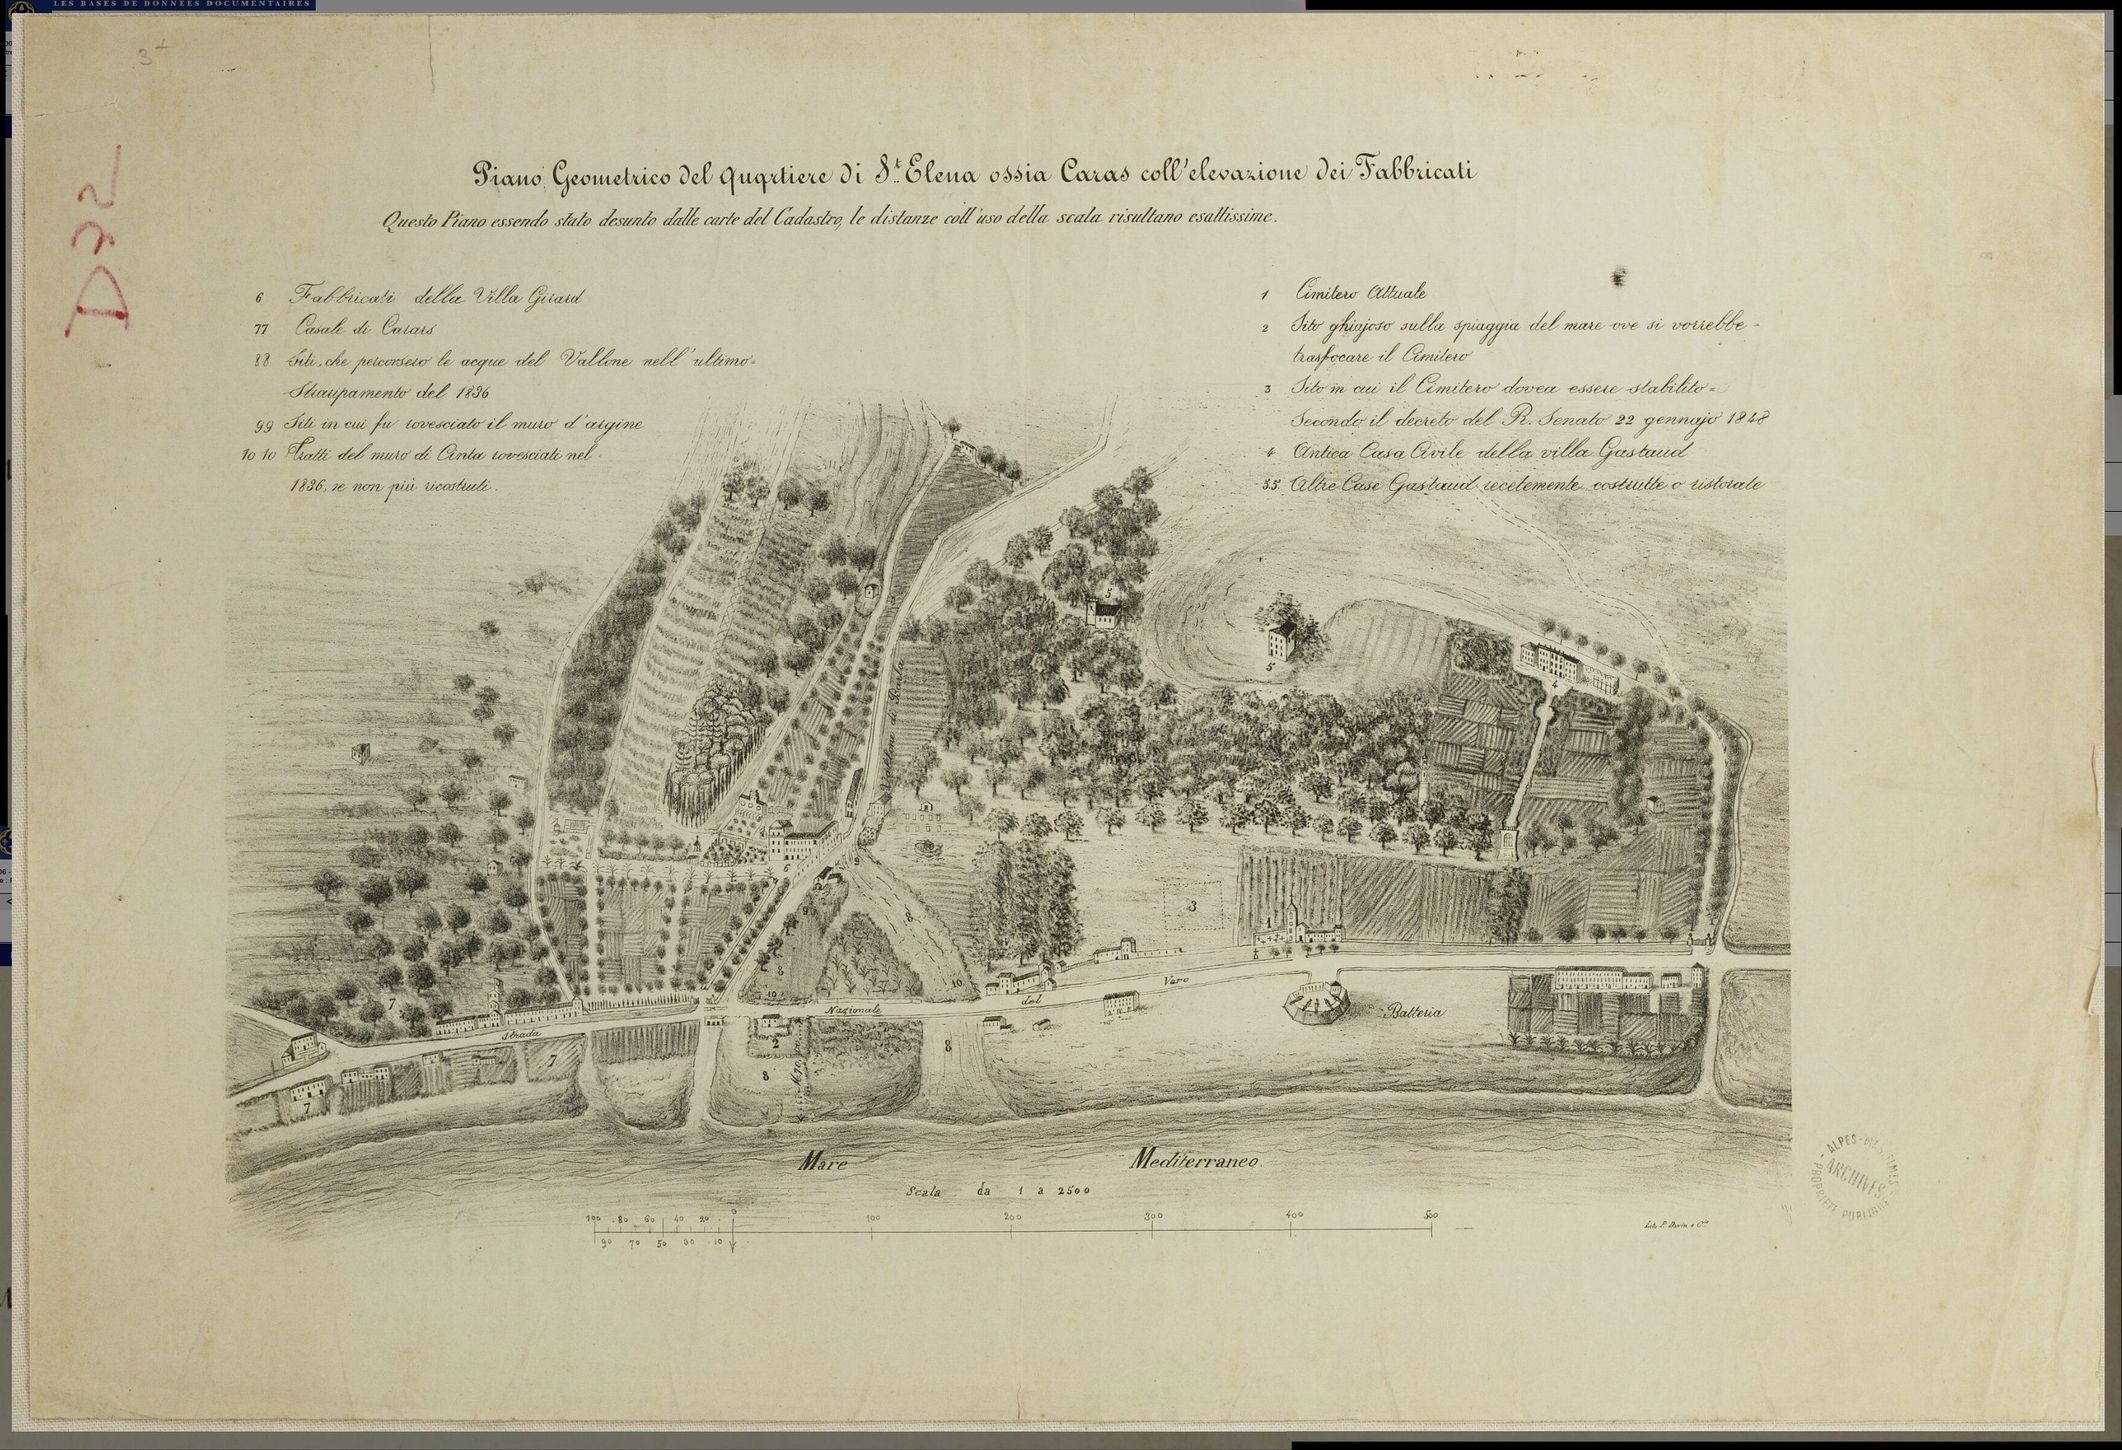 LES BASES DE DONNÉES DOCUMENTAIRES
3
D22
Piano Geometrico del Quartiere di S.t Elena ossia Caras coll'elevazione dei Fabbricati
Questo Piano essendo stato desunto dalle carte del Cadastro, le distanze coll'uso della scala risultano esattissime.
6 Fabbricati della Villa Girard
77 Casale di Carars
88 Siti, che percorsero le acque del Vallone nell'ultimo=
Straripamento del 1836
99 Siti in cui fu rovesciato il muro d'argine
10 10 Tratti del muro di Cinta rovesciati nel
1836, e non più ricostruti.
1 Cimitero Attuale
2 Sito ghiajoso sulla spiaggia del mare ove si vorrebbe=
traslocare il Cimitero
3 Sito in cui il Cimitero dovea essere stabilito=
Secondo il decreto del R. Senato 22 gennajo 1848
4 Antica Casa Civile della villa Gastaud
55 Altre Case Gastaud recetemente costrutte o ristorate
5
5
4
di
6
9
9
8
3
1
7
8
10
10
Strada
Nazionale
del
Varo
Batteria
7
7
2
8
8
Mare Mediterraneo.
Scala da 1 a 2500
100 80 60 40 20 0 100 200 300 400 500
90 70 50 30 10
Lit. P.
ALPES-MARITIMES
ARCHIVES
PROPRIÉTÉ PUBLIQUE